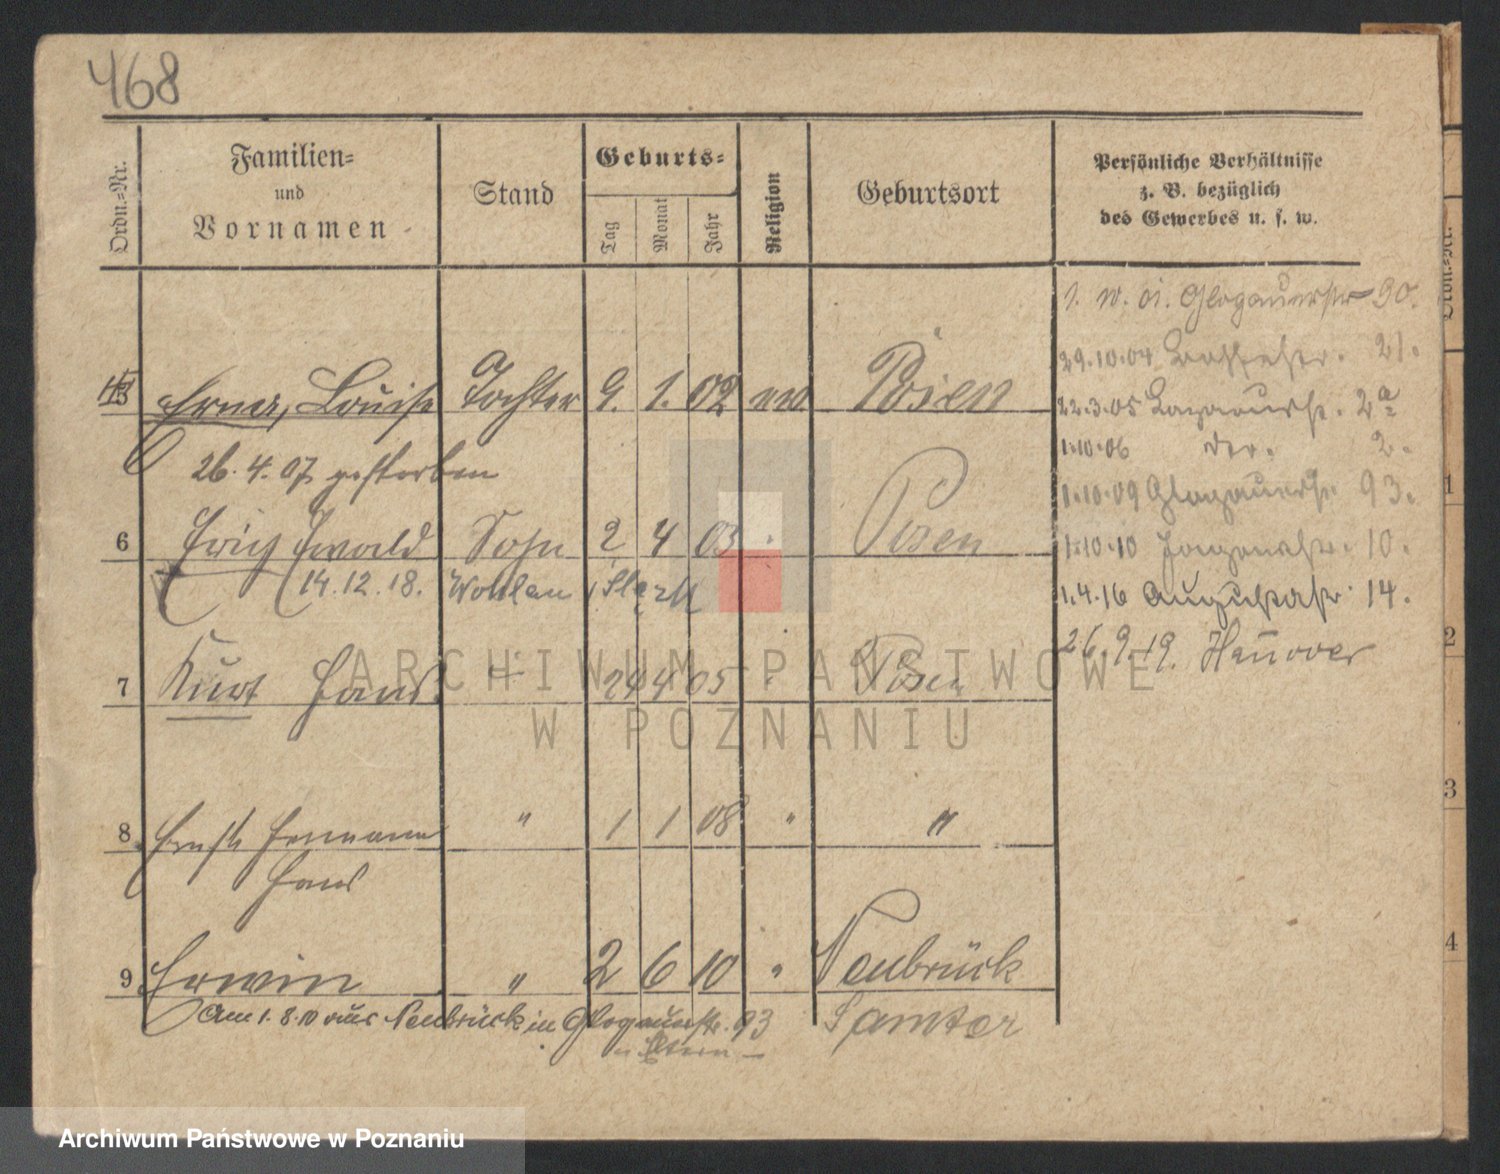 468
Ordn.=Nr.
Familien=
und
Vornamen
Stand
Geburts=
Tag
Monat
Jahr
Religion
Geburtsort
Persönliche Verhältnisse
z. B. bezüglich
des Gewerbes u. s. w.
Glogauerstr 90.
Erna, Louise Tochter 9. 1. 02 ev. Posen
26.4.07 gestorben
29.10.04 21.
22.3.05 2a
1.10.06 der. 2.
1.10.09 Glogauerstr. 93.
6 Erich Ewald Sohn 2 4 03 Posen
1.10.10 10.
14.12.18. Wohlau
1.4.16 Augustastr. 14.
26.9.19. Hannover
7 Kurt Hans 24 4 05 Posen
8 Ernst Hermann " 1 1 08 " "
Hans
9 Erwin " 2 6 10 " Neubrück
Am 1.8.10 aus Neubrück in Glogauerstr. 93 Samter
Eltern
1
2
3
4
ARCHIWUM PAŃSTWOWE
W POZNANIU
Archiwum Państwowe w Poznaniu